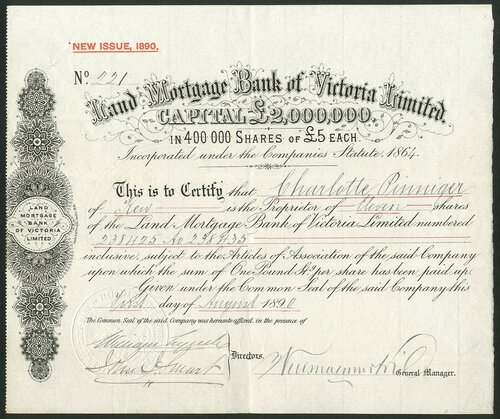 NEW ISSUE, 1890.
No 221
Land Mortgage Bank of Victoria Limited.
CAPITAL £2,000,000.
IN 400 000 SHARES OF £5 EACH.
Incorporated under the Companies Statute, 1864.
This is to Certify that Charlotte Pinniger
of Kew is the Proprietor of eleven shares
of the Land Mortgage Bank of Victoria Limited numbered
inclusive, subject to the Articles of Association of the said Company
upon which the sum of One Pound Stg. per share has been paid up.
Given under the Common Seal of the said Company this
first day of August 1890
The Common Seal of the said Company was hereunto affixed, in the presence of
Directors.
General Manager.
LAND
MORTGAGE
BANK
OF VICTORIA
LIMITED